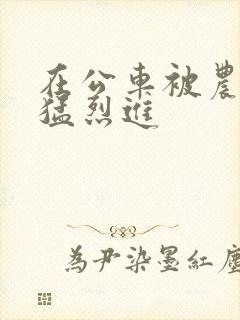 在公車被農
猛烈進
為尹染墨紅塵